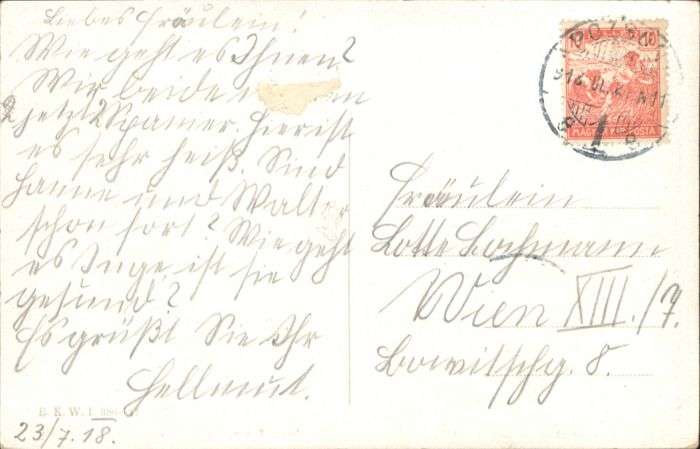 Liebes Fräulein!
Wie geht es Ihnen?
Wir beide
jetzt 2 Spanier. Hier ist
es sehr heiß. Sind
Hanne und Walter
schon fort? Wie geht
es Inge ist sie
gesund?
Es grüßt Sie Ihr
Hellmut.
B.K.W.I.
23/7.18.
POZSO
MAGYAR KIR. POSTA
Fräulein
Lotte Bochmann
Wien XIII./7.
8.